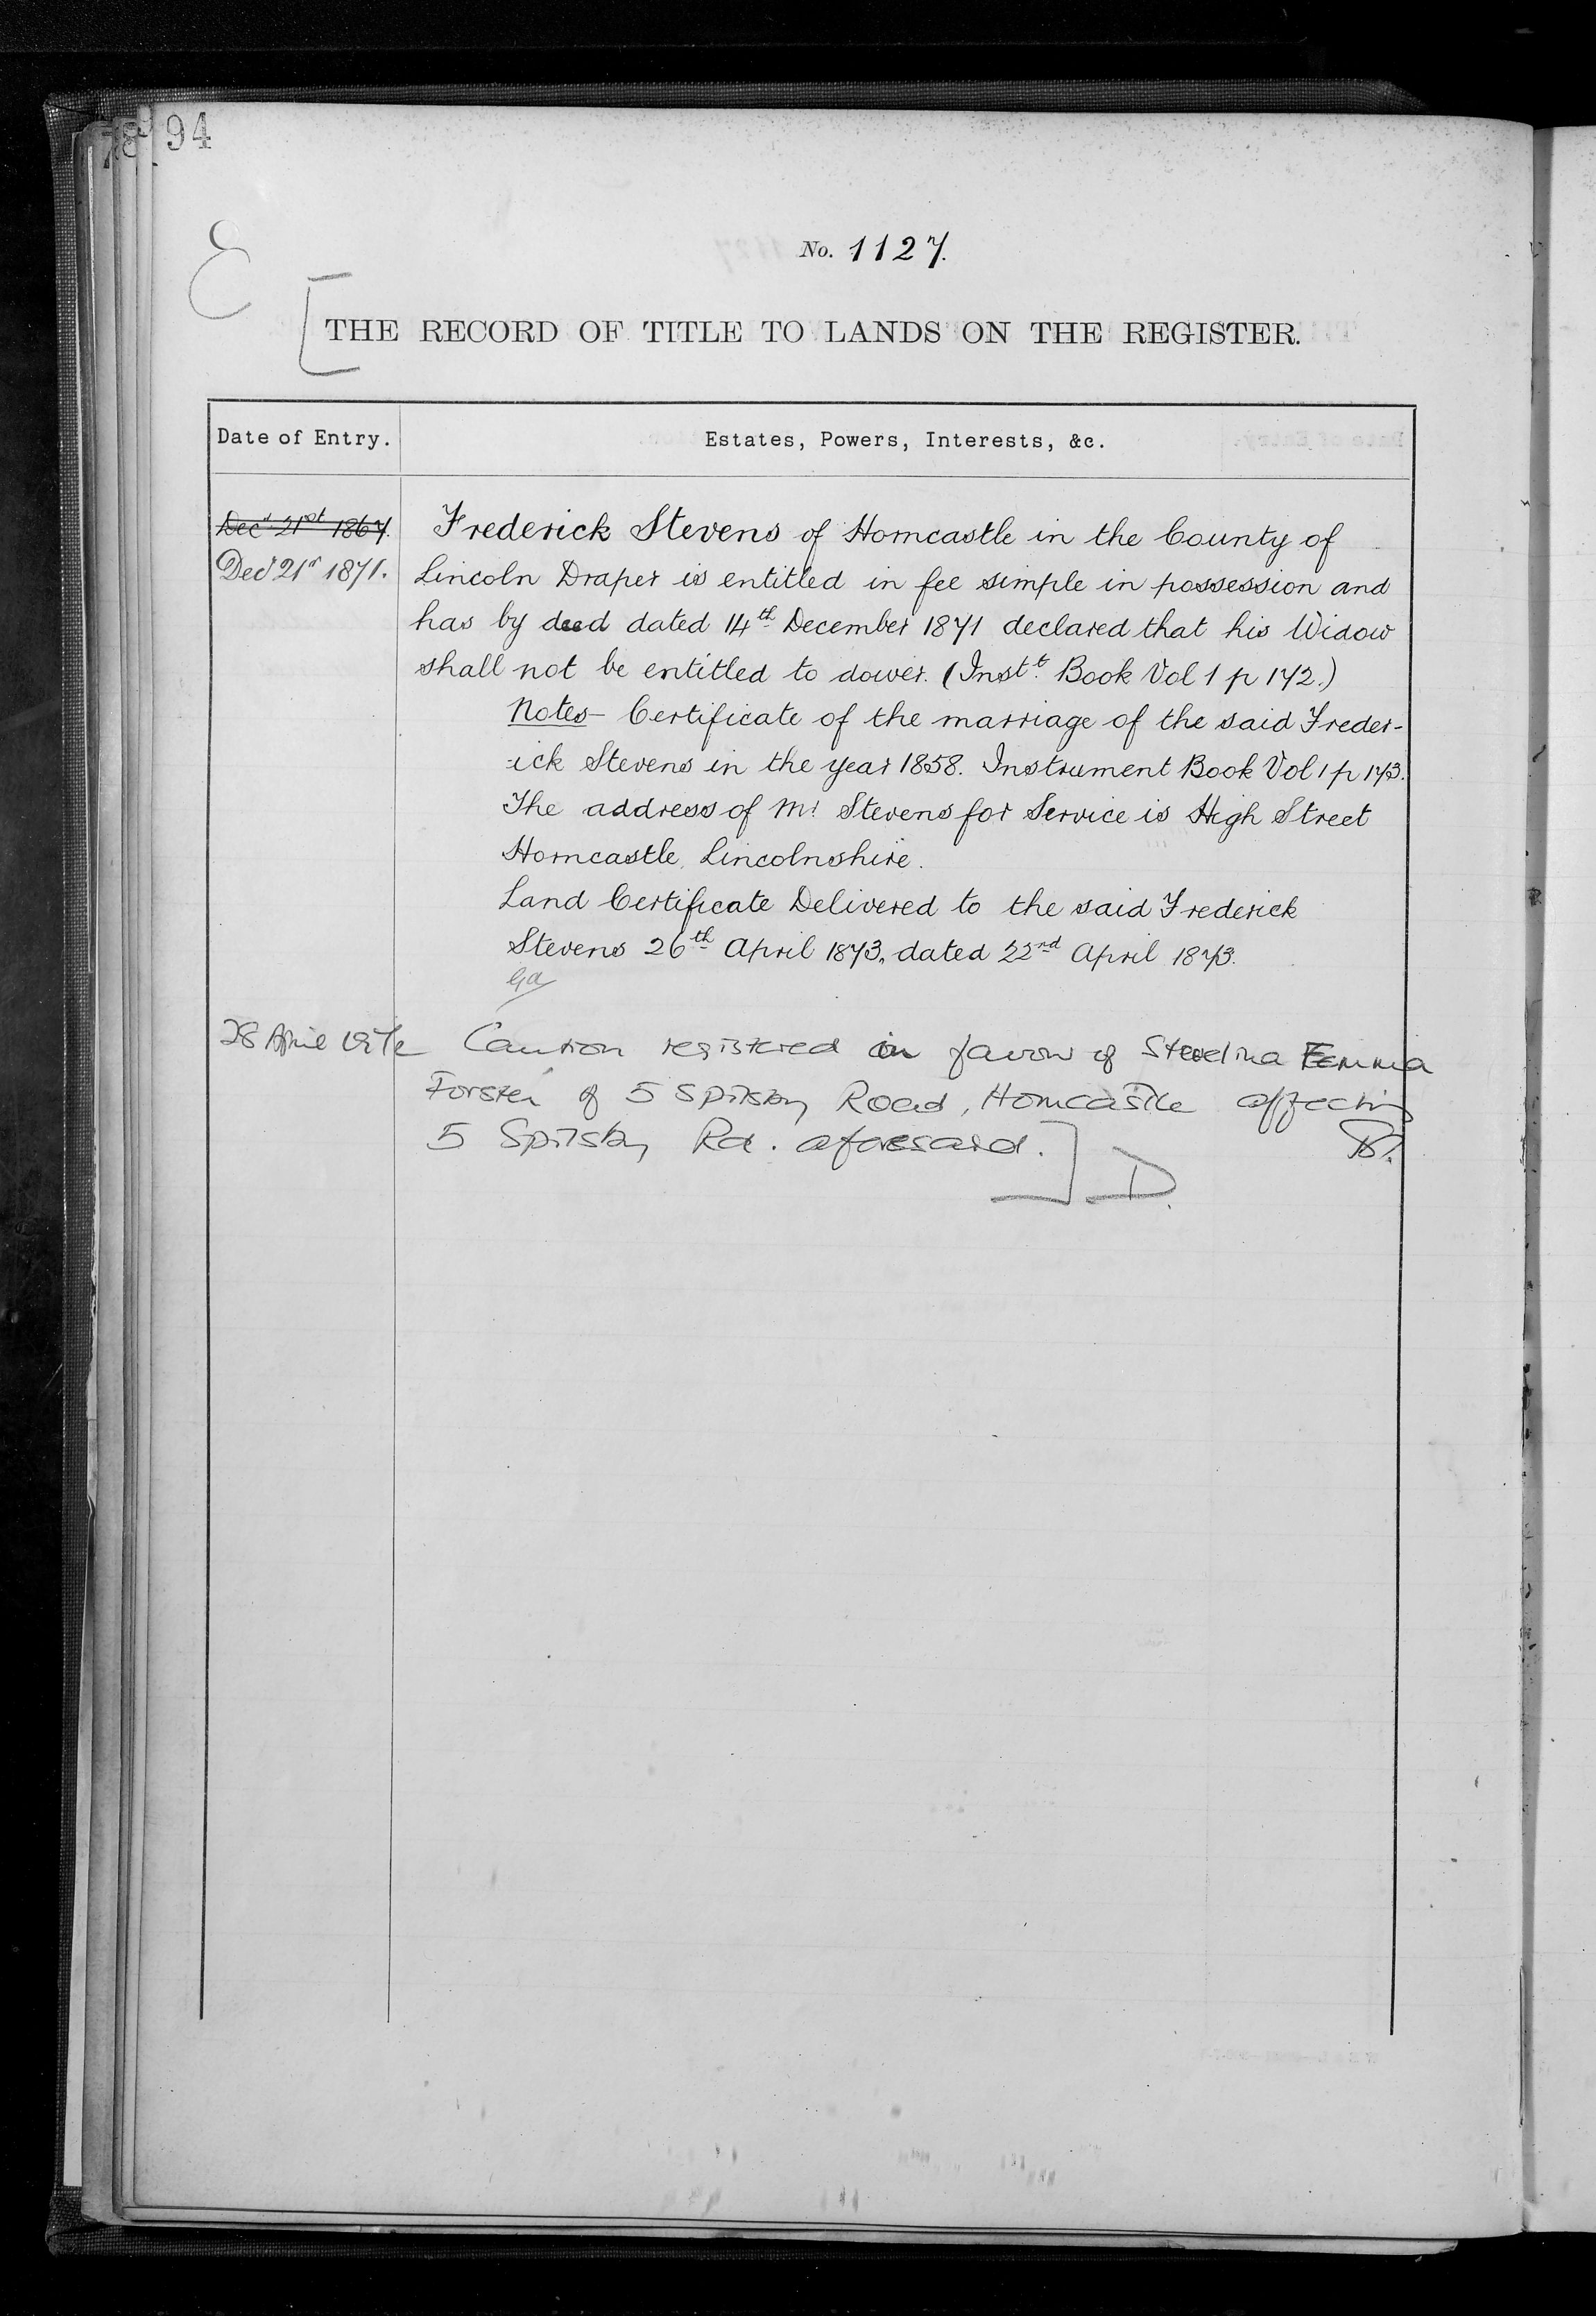 94
No. 1127.
THE RECORD OF TITLE TO LANDS ON THE REGISTER.
Date of Entry.
Estates, Powers, Interests, &c.
Decr 21st 1867.
Decr 21st 1871.
Frederick Stevens of Horncastle in the County of
Lincoln Draper is entitled in fee simple in possession and
has by deed dated 14th December 1871 declared that his Widow
shall not be entitled to dower. (Instt. Book Vol 1 p 172.)
Notes - Certificate of the marriage of the said Freder-
ick Stevens in the year 1858. Instrument Book Vol 1 p 173.
The address of Mr. Stevens for Service is High Street
Horncastle, Lincolnshire.
Land Certificate Delivered to the said Frederick
Stevens 26th April 1873, dated 22nd April 1873.
28 April
Caution registered in favour of Emma
Forster of 5 Spilsby Road, Horncastle affecting
5 Spilsby Rd. aforesaid.
D.